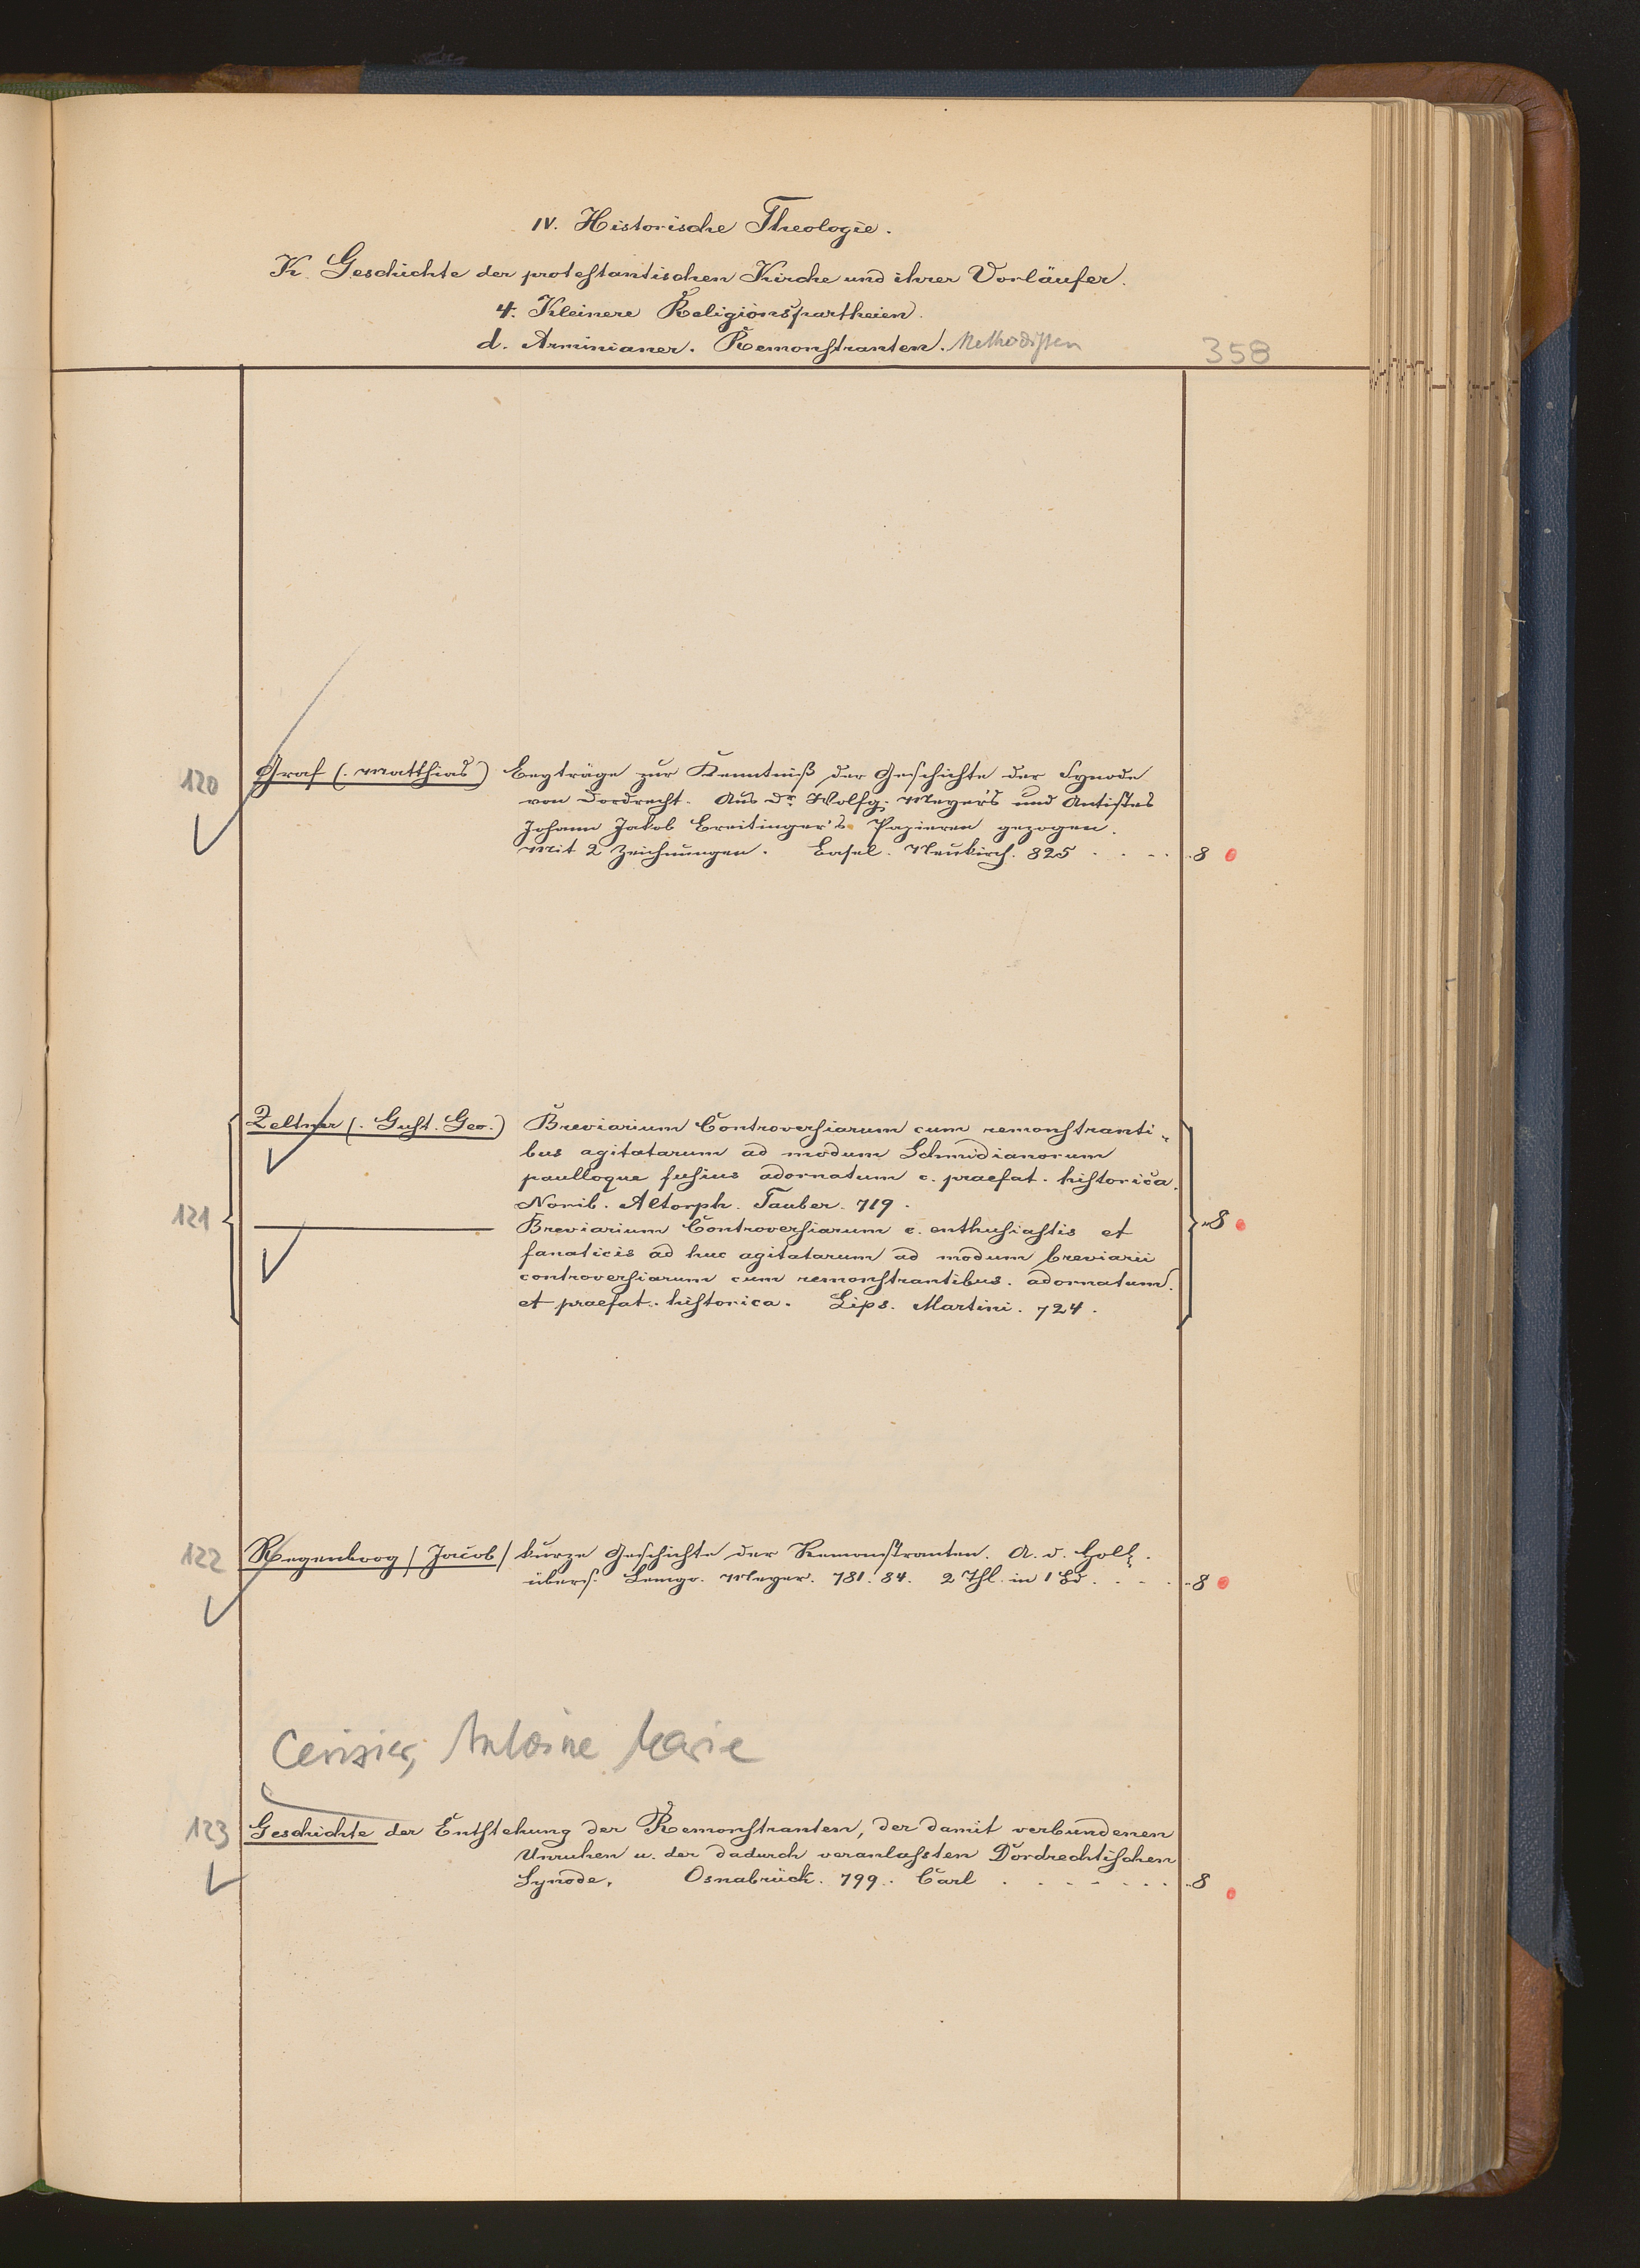 IV. Historische Theologie.
K. Geschichte der protestantischen Kirche und ihrer Vorläufer.
4. Kleinere Religionspartheien.
d. Arminianer. Remonstranten. Methodisten
358
120 Graf (. Matthias) Beyträge zur Kenntniß der Geschichte der Synode
von Dordrecht. Aus Dr. Wolfg. Meyer's und Antistes
Johann Jakob Breitinger's Papieren gezogen.
Mit 2 Zeichnungen. Basel. Neukirch. 825 . . . . 8
Zeltner (. Gust. Geo.) Breviarium Controversiarum cum remonstranti-
bus agitatarum ad modum Schmidianorum
paulloque fusius adornatum c. praefat. historica.
Norib. Altorph. Tauber. 719.
121 ——— Breviarium Controversiarum c. enthusiastis et 8
fanaticis ad huc agitatarum ad modum breviarii
controversiarum cum remonstrantibus. adornatum.
et praefat. historica. Lips. Martini. 724.
122 Regenboog / Jacob / kurze Geschichte der Remonstranten. A. d. Holl.
übers. Lemgo. Meyer. 781. 84. 2 Thl. in 1 Bd. . . . 8
Cerisier, Antoine Marie
123 Geschichte der Entstehung der Remonstranten, der damit verbundenen
Unruhen u. der dadurch veranlassten Dordrechtischen
Synode. Osnabrück. 799. Carl . . . . . . . 8